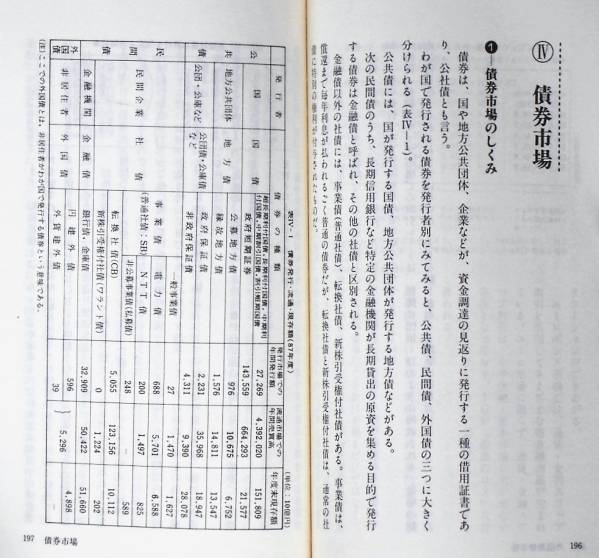 Ⅳ 債券市場
❶—債券市場のしくみ
債券は、国や地方公共団体、企業などが、資金調達の見返りに発行する一種の借用証書であ
り、公社債とも言う。
わが国で発行される債券を発行者別にみてみると、公共債、民間債、外国債の三つに大きく
分けられる（表Ⅳ-1）。
公共債には、国が発行する国債、地方公共団体が発行する地方債などがある。
次の民間債のうち、長期信用銀行など特定の金融機関が長期貸出の原資を集める目的で発行
する債券は金融債と呼ばれ、その他の社債と区別される。
金融債以外の社債には、事業債（普通社債）、転換社債、新株引受権付社債がある。事業債は、
償還まで毎年利息が払われるごく普通の債券だが、転換社債と新株引受権付社債は、通常の社
債に特別の権利が付与されたものだ。
196
表Ⅳ-1 債券発行・流通・現存額（87年度）
（単位：10億円）
発行者 債券の種類 発行市場での年間発行額 流通市場での年間売買高 年度末現存額
公共債 国 国債 超長期利付国債、長期利付国債、中期利付国債、中期割引国債、割引短期国債 27,269 4,392,020 151,809
政府短期証券 143,559 664,293 21,577
地方公共団体 地方債 公募地方債 976 10,675 6,752
縁故地方債 1,576 14,811 13,547
公団・公庫など 公団債・公庫債など 政府保証債 2,231 35,968 18,947
非政府保証債 4,311 9,390 28,078
民間債 民間企業 社債 事業債（普通社債：SB） 一般事業債 27 1,470 1,627
電力債 688 5,701 6,588
NTT債 200 1,497 825
非公募事業債（私募債） 248 589
転換社債(CB) 5,055 123,156 10,112
新株引受権付社債（ワラント債） 0 1,224 202
金融機関 金融債 銀行債・金庫債 32,909 50,422 51,660
外国債 非居住者 外国債 円建外債 596 5,296 4,898
外貨建外債 39
（注）ここでの外国債とは、非居住者がわが国で発行する債券という意味である。
197 債券市場